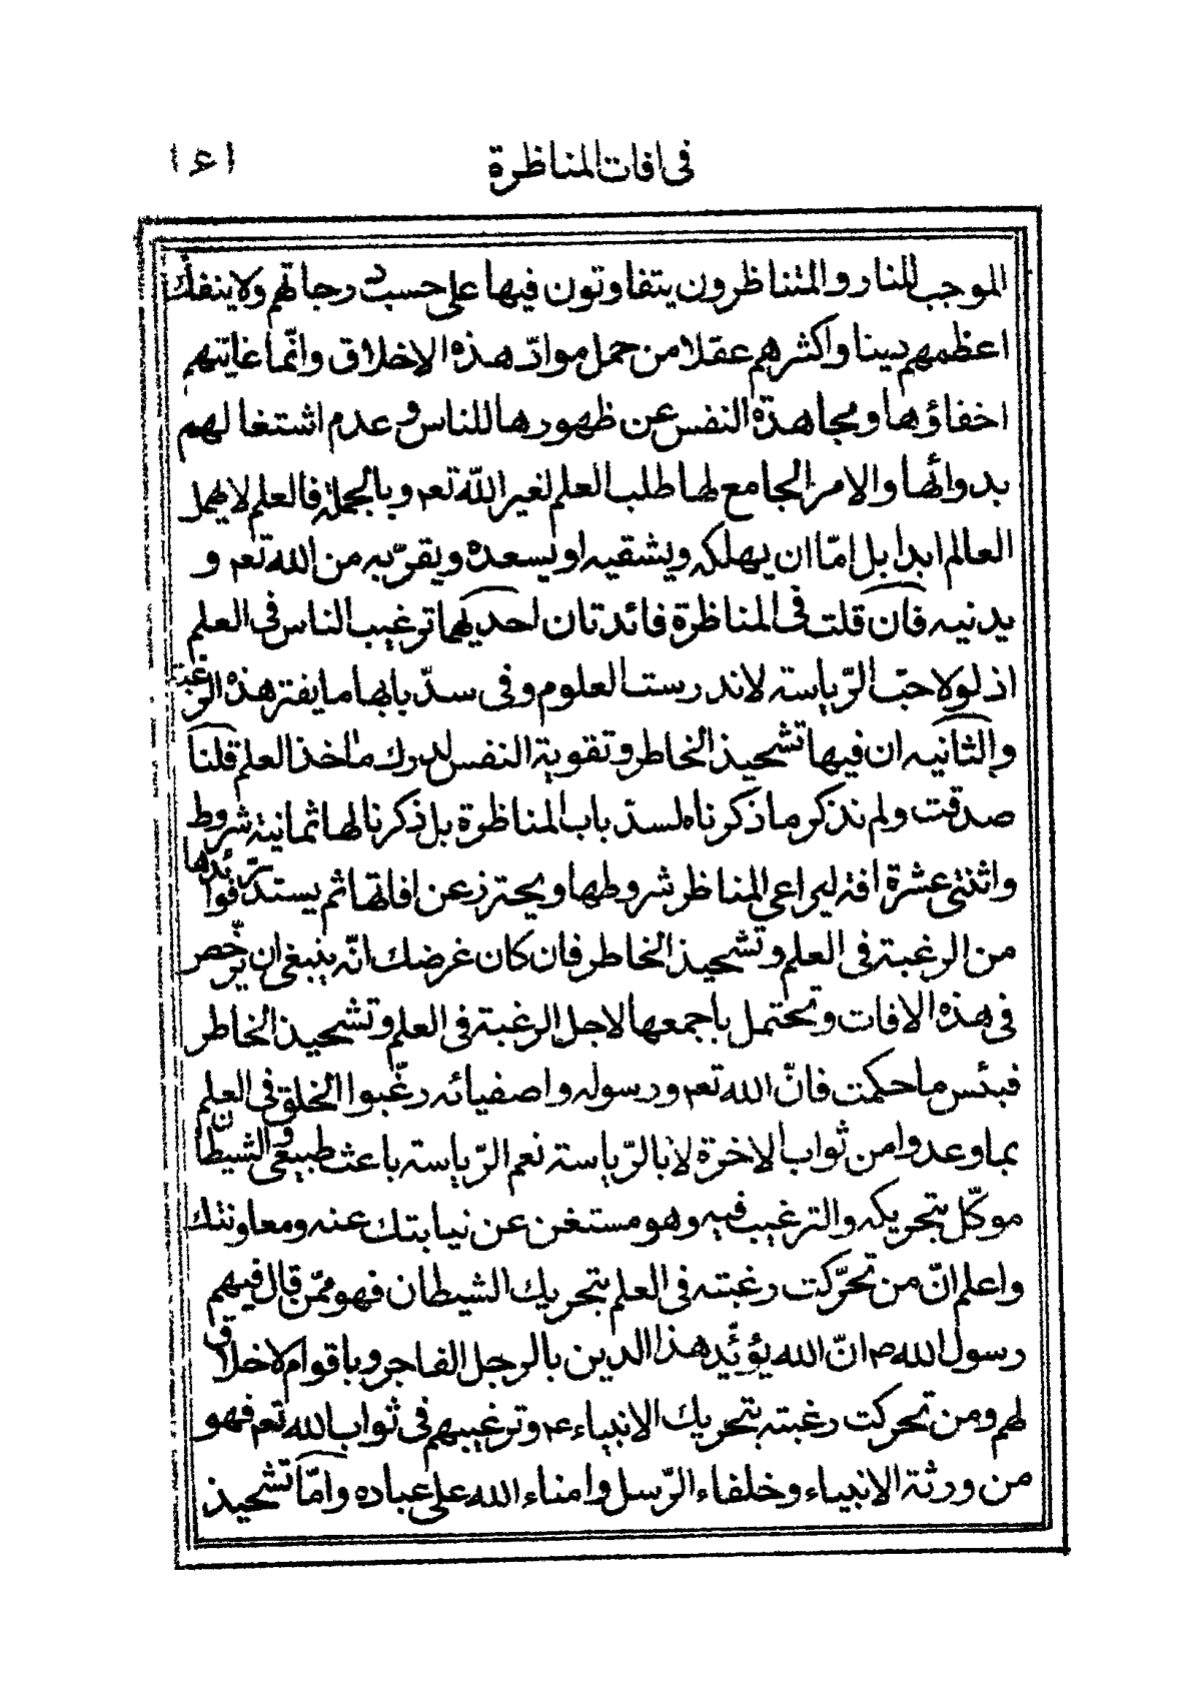 في افات المناظرة ١٤١
الموجب للنار والمتناظرون يتفاوتون فيها على حسب درجاتهم ولا ينفك
اعظمهم دينا واكثرهم عقلا من حمل موادّ هذه الاخلاق وانّما غايتهم
اخفاؤها ومجاهدة النفس عن ظهورها للناس وعدم اشتغالهم
بدوائها والامر الجامع لها طلب العلم لغير الله تعم وبالجملة فالعلم لا يهمل
العالم ابدا بل امّا ان يهلكه ويشقيه او يسعده ويقرّبه من الله تعم و
يدنيه فان قلت في المناظرة فائدتان احديهما ترغيب الناس في العلم
اذ لولا حبّ الرّياسة لاندرست العلوم وفي سدّ بابها ما يفتر هذه الرغبة
والثانيه ان فيها تشحيذ الخاطر وتقوية النفس لدرك ماخذ العلم قلنا
صدقت ولم نذكر ما ذكرناه لسدّ باب المناظرة بل ذكرنا لها ثمانية شروط
واثنتى عشرة افة ليراعى المناظر شروطها ويحترز عن افاتها ثم يستدرّ فوائدها
من الرغبة في العلم وتشحيذ الخاطر فان كان غرضك انّه ينبغى ان يرخّص
في هذه الافات وتحتمل باجمعها لاجل الرغبة في العلم وتشحيذ الخاطر
فبئس ما حكمت فانّ الله تعم ورسوله واصفيائه رغّبوا الخلق في العلم
بما وعدوا من ثواب الاخرة لا بالرّياسة نعم الرّياسة باعث طبيعى والشيطان
موكّل بتحريكه والترغيب فيه وهو مستغن عن نيابتك عنه ومعاونتك
واعلم انّ من تحرّكت رغبته في العلم بتحريك الشيطان فهو ممّن قال فيهم
رسول الله ص انّ الله يؤيّد هذا الدين بالرجل الفاجر وباقوام لا خلاق
لهم ومن تحركت رغبته بتحريك الانبياء ع وترغيبهم في ثواب الله تعم فهو
من ورثة الانبياء وخلفاء الرّسل وامناء الله على عباده وامّا تشحيذ